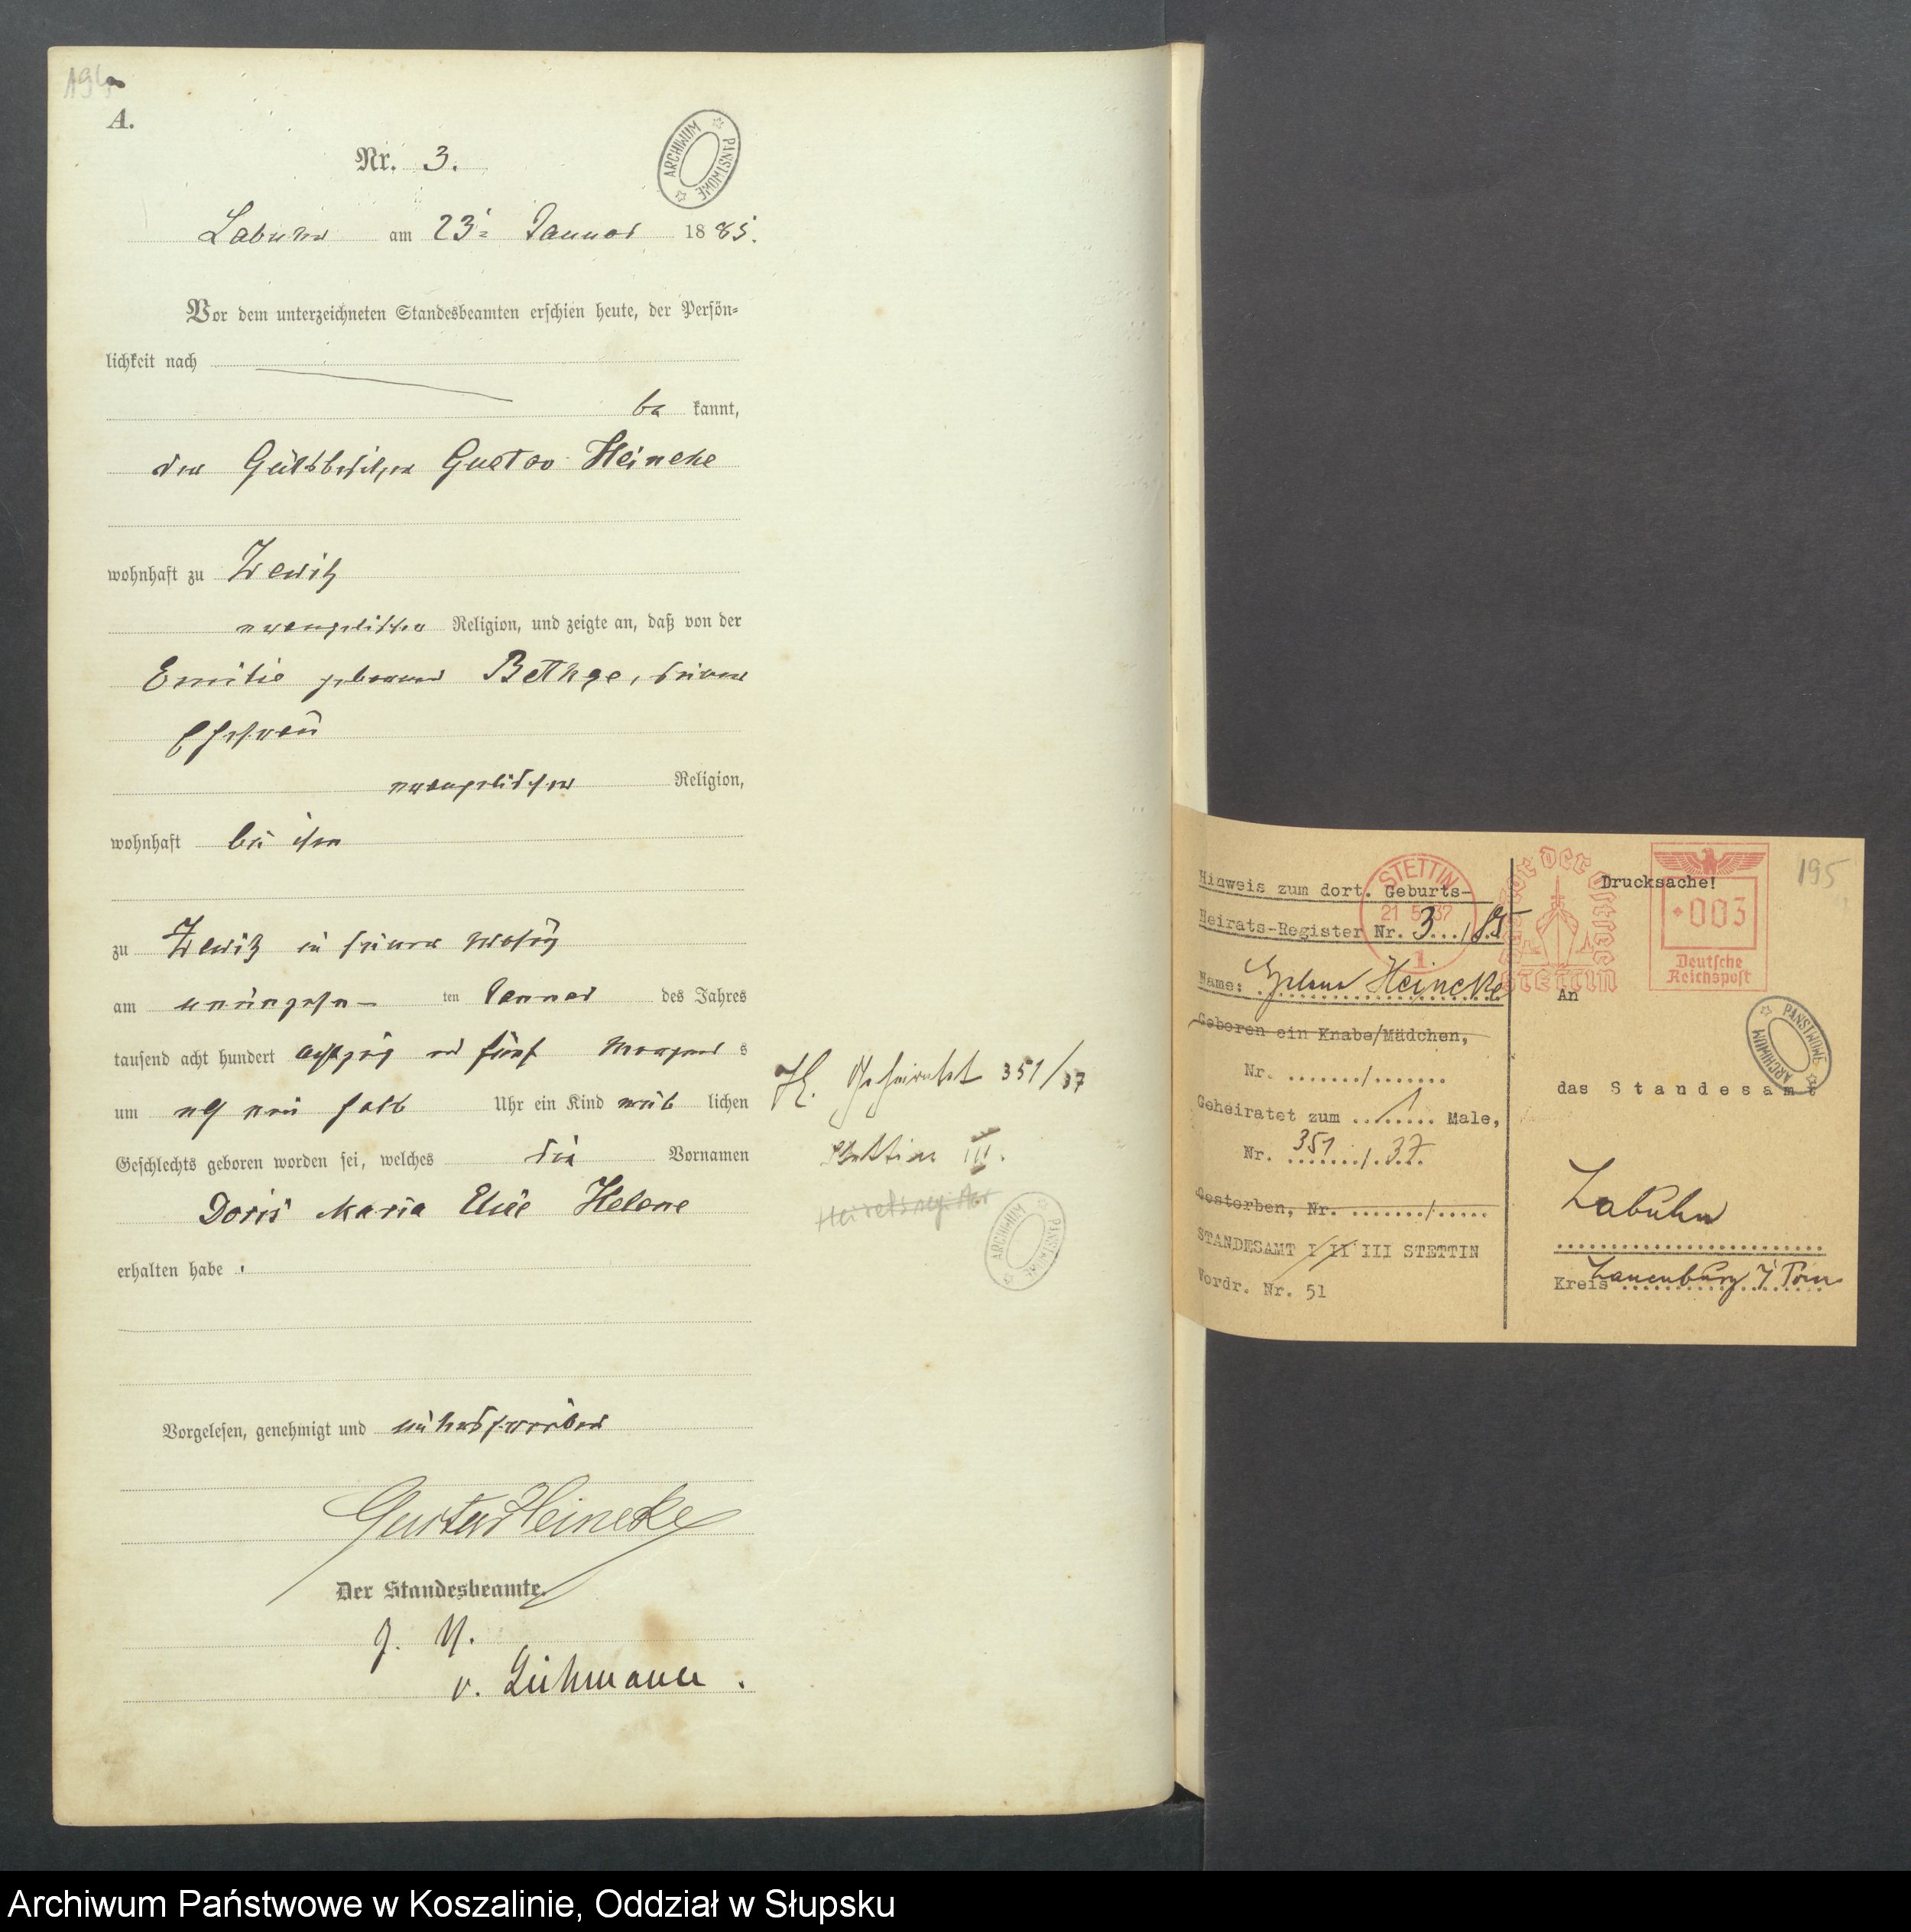 194
A.
Nr. 3.
ARCHIWUM PAŃSTWOWE
Labuhn am 23. Januar 1885.
Vor dem unterzeichneten Standesbeamten erschien heute, der Persön-
lichkeit nach
be kannt,
der Gutsbesitzer Gustav Heineke
wohnhaft zu Zewitz
evangelischer Religion, und zeigte an, daß von der
Emilie geborene Bethge, seiner
Ehefrau
evangelischer Religion,
wohnhaft bei ihm
zu Zewitz in seiner Wohng
am neunzehn ten Januar des Jahres
tausend acht hundert achtzig und fünf Morgens
um halb Uhr ein Kind weib lichen
Geschlechts geboren worden sei, welches die Vornamen
Doris Maria Elise Helene
erhalten habe .
H. Geheiratet 351/37
Stettin III.
Heiratsregister
ARCHIWUM PAŃSTWOWE
Vorgelesen, genehmigt und unterschrieben
Gustav Heineke
Der Standesbeamte.
J. V.
v.
Hinweis zum dort. Geburts-
Heirats-Register Nr. 3.../85
Name: Helene Heineke
Geboren ein Knabe/Mädchen,
Nr. ......./.......
Geheiratet zum ....1.... Male,
Nr. 351/37
Gestorben, Nr. ......./.....
STANDESAMT I II III STETTIN
Vordr. Nr. 51
STETTIN
21.5.37
1
Tor der Ostsee
STETTIN
Drucksache!
003
Deutsche
Reichspost
195
An
ARCHIWUM PAŃSTWOWE
das Standesamt
Labuhn
Kreis Lauenburg i/Pom
Archiwum Państwowe w Koszalinie, Oddział w Słupsku